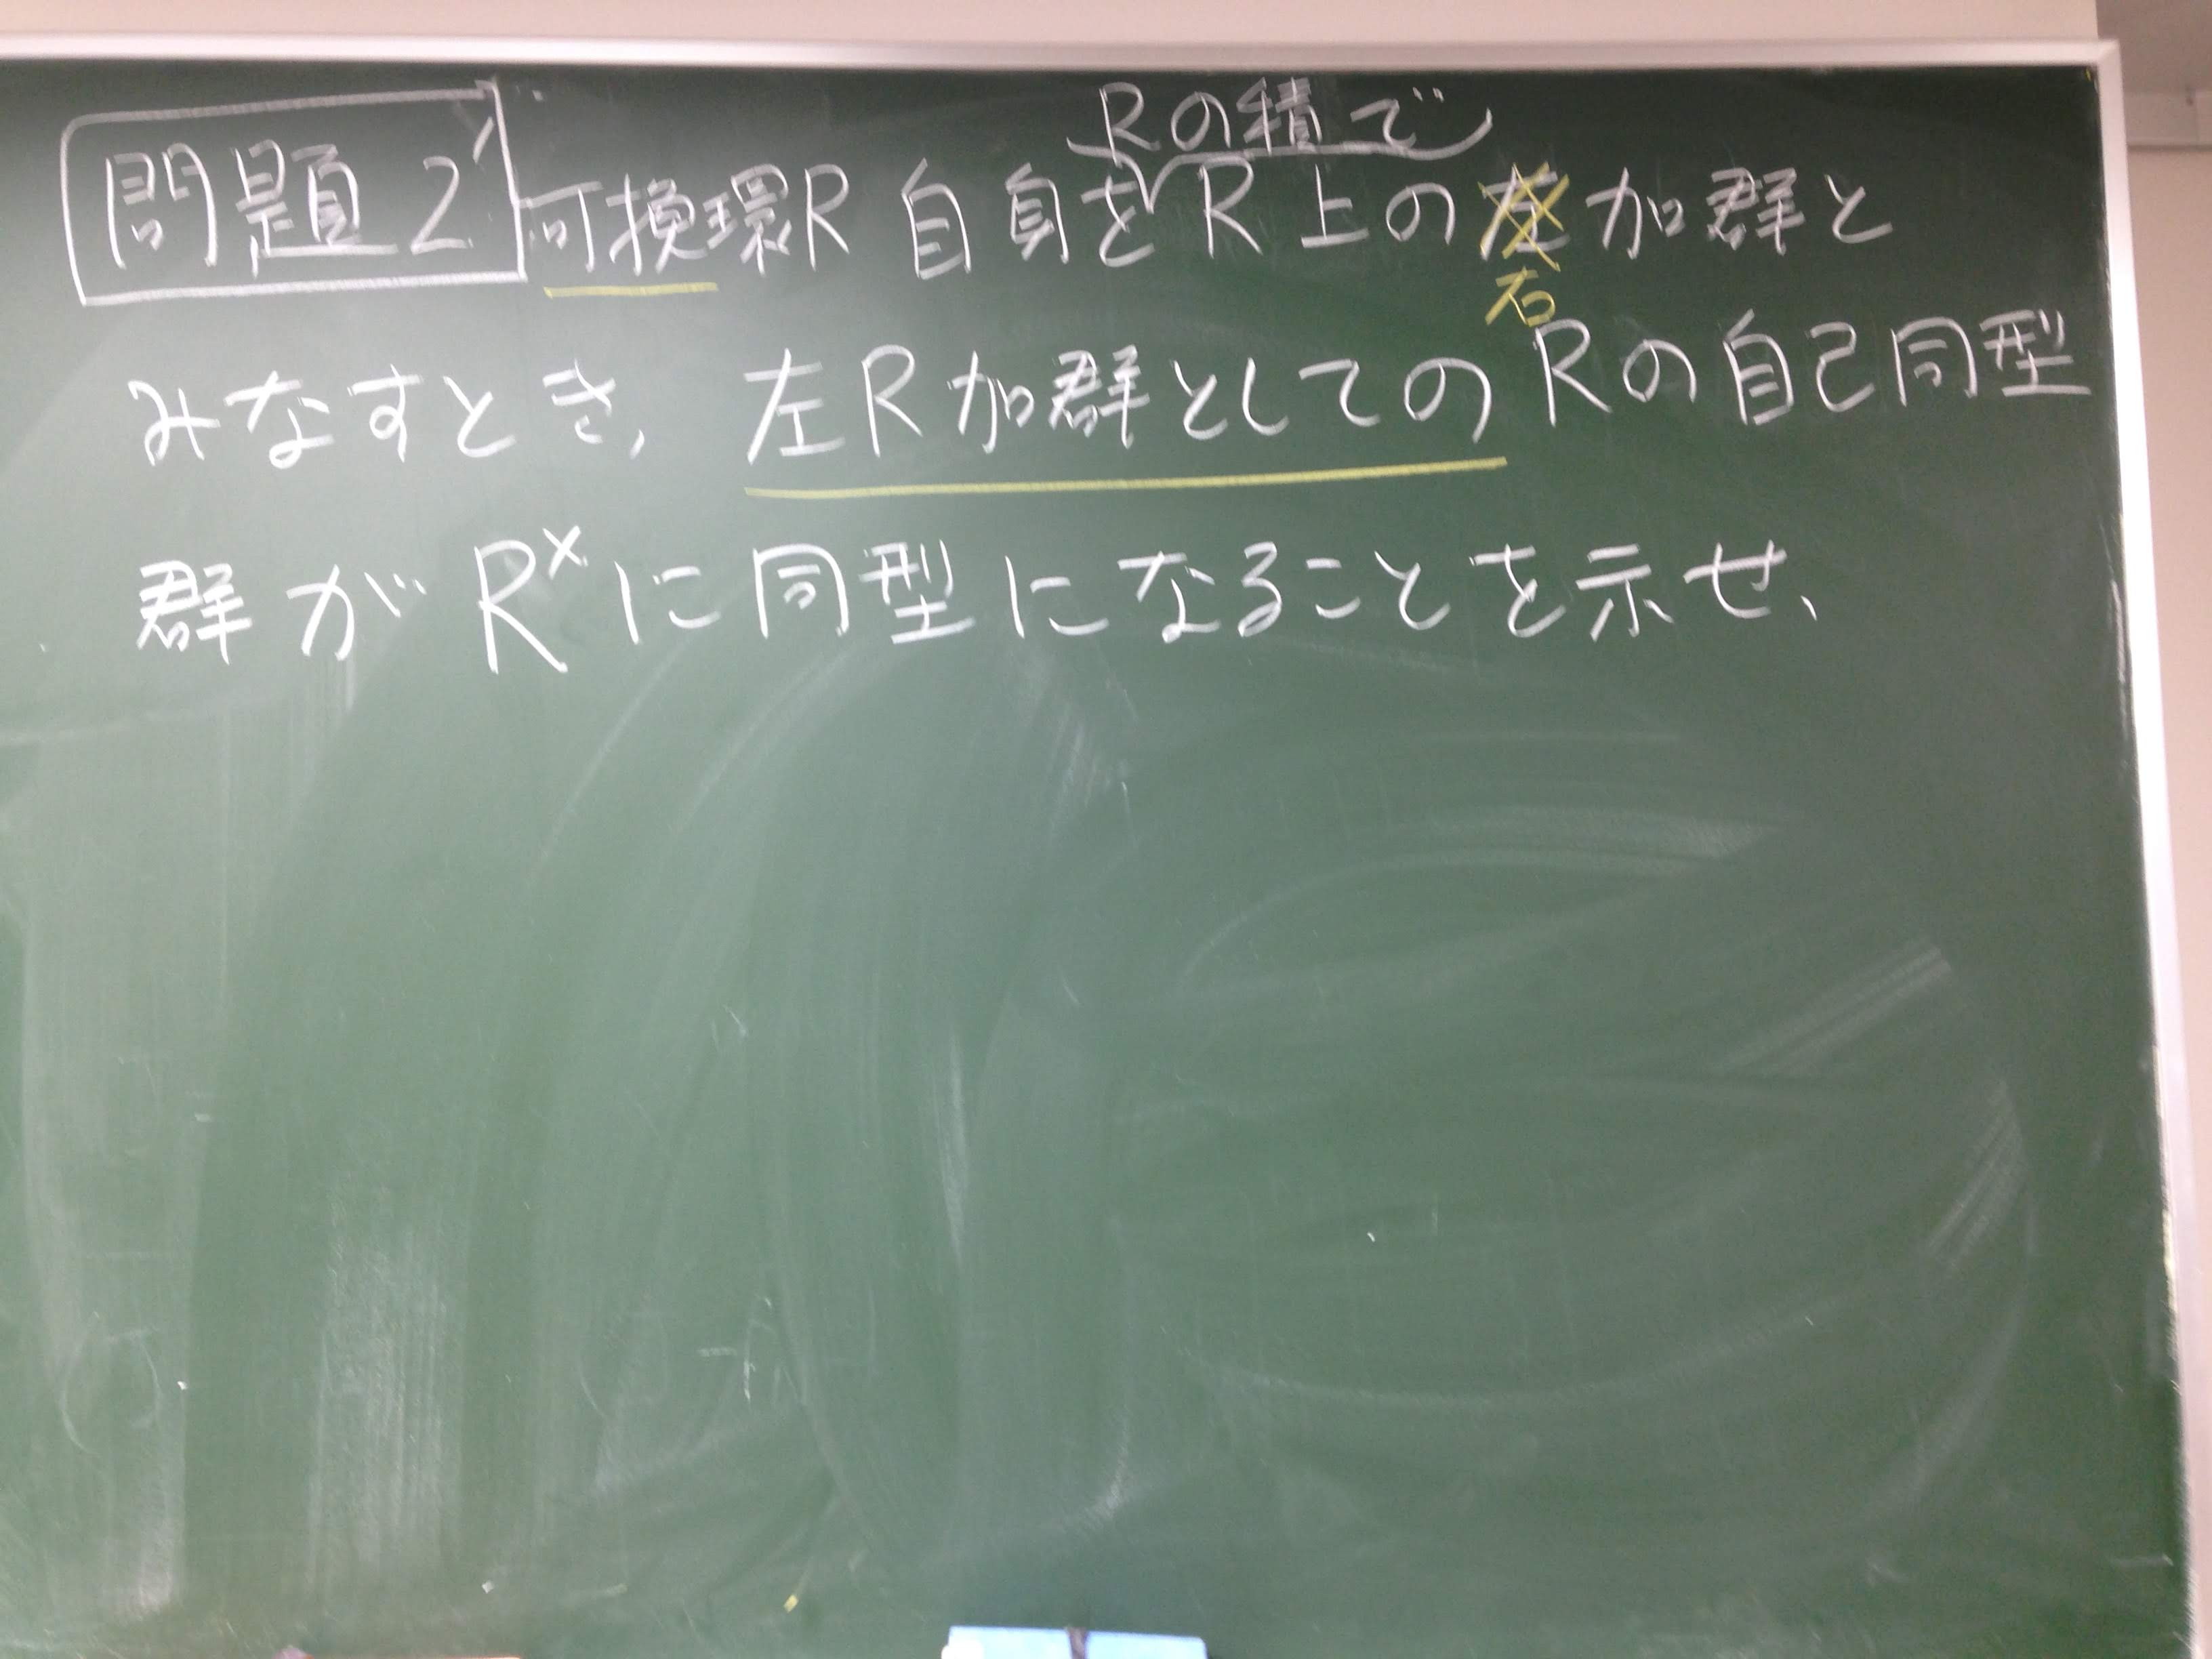 Rの積で
問題2' 可換環R自身をR上の左加群と
右
みなすとき、左R加群としてのRの自己同型
群がR×に同型になることを示せ、